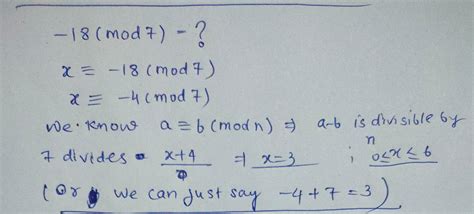 -18 (mod 7) - ?
x ≡ -18 (mod 7)
x ≡ -4 (mod 7)
We know a ≡ b (mod n) ⇒ a-b is divisible by n
7 divides x+4 ⇒ x=3 ; 0≤x≤6
(Or we can just say -4+7=3)